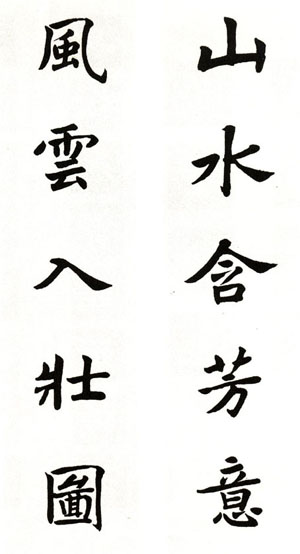 山水含芳意
風雲入壯圖